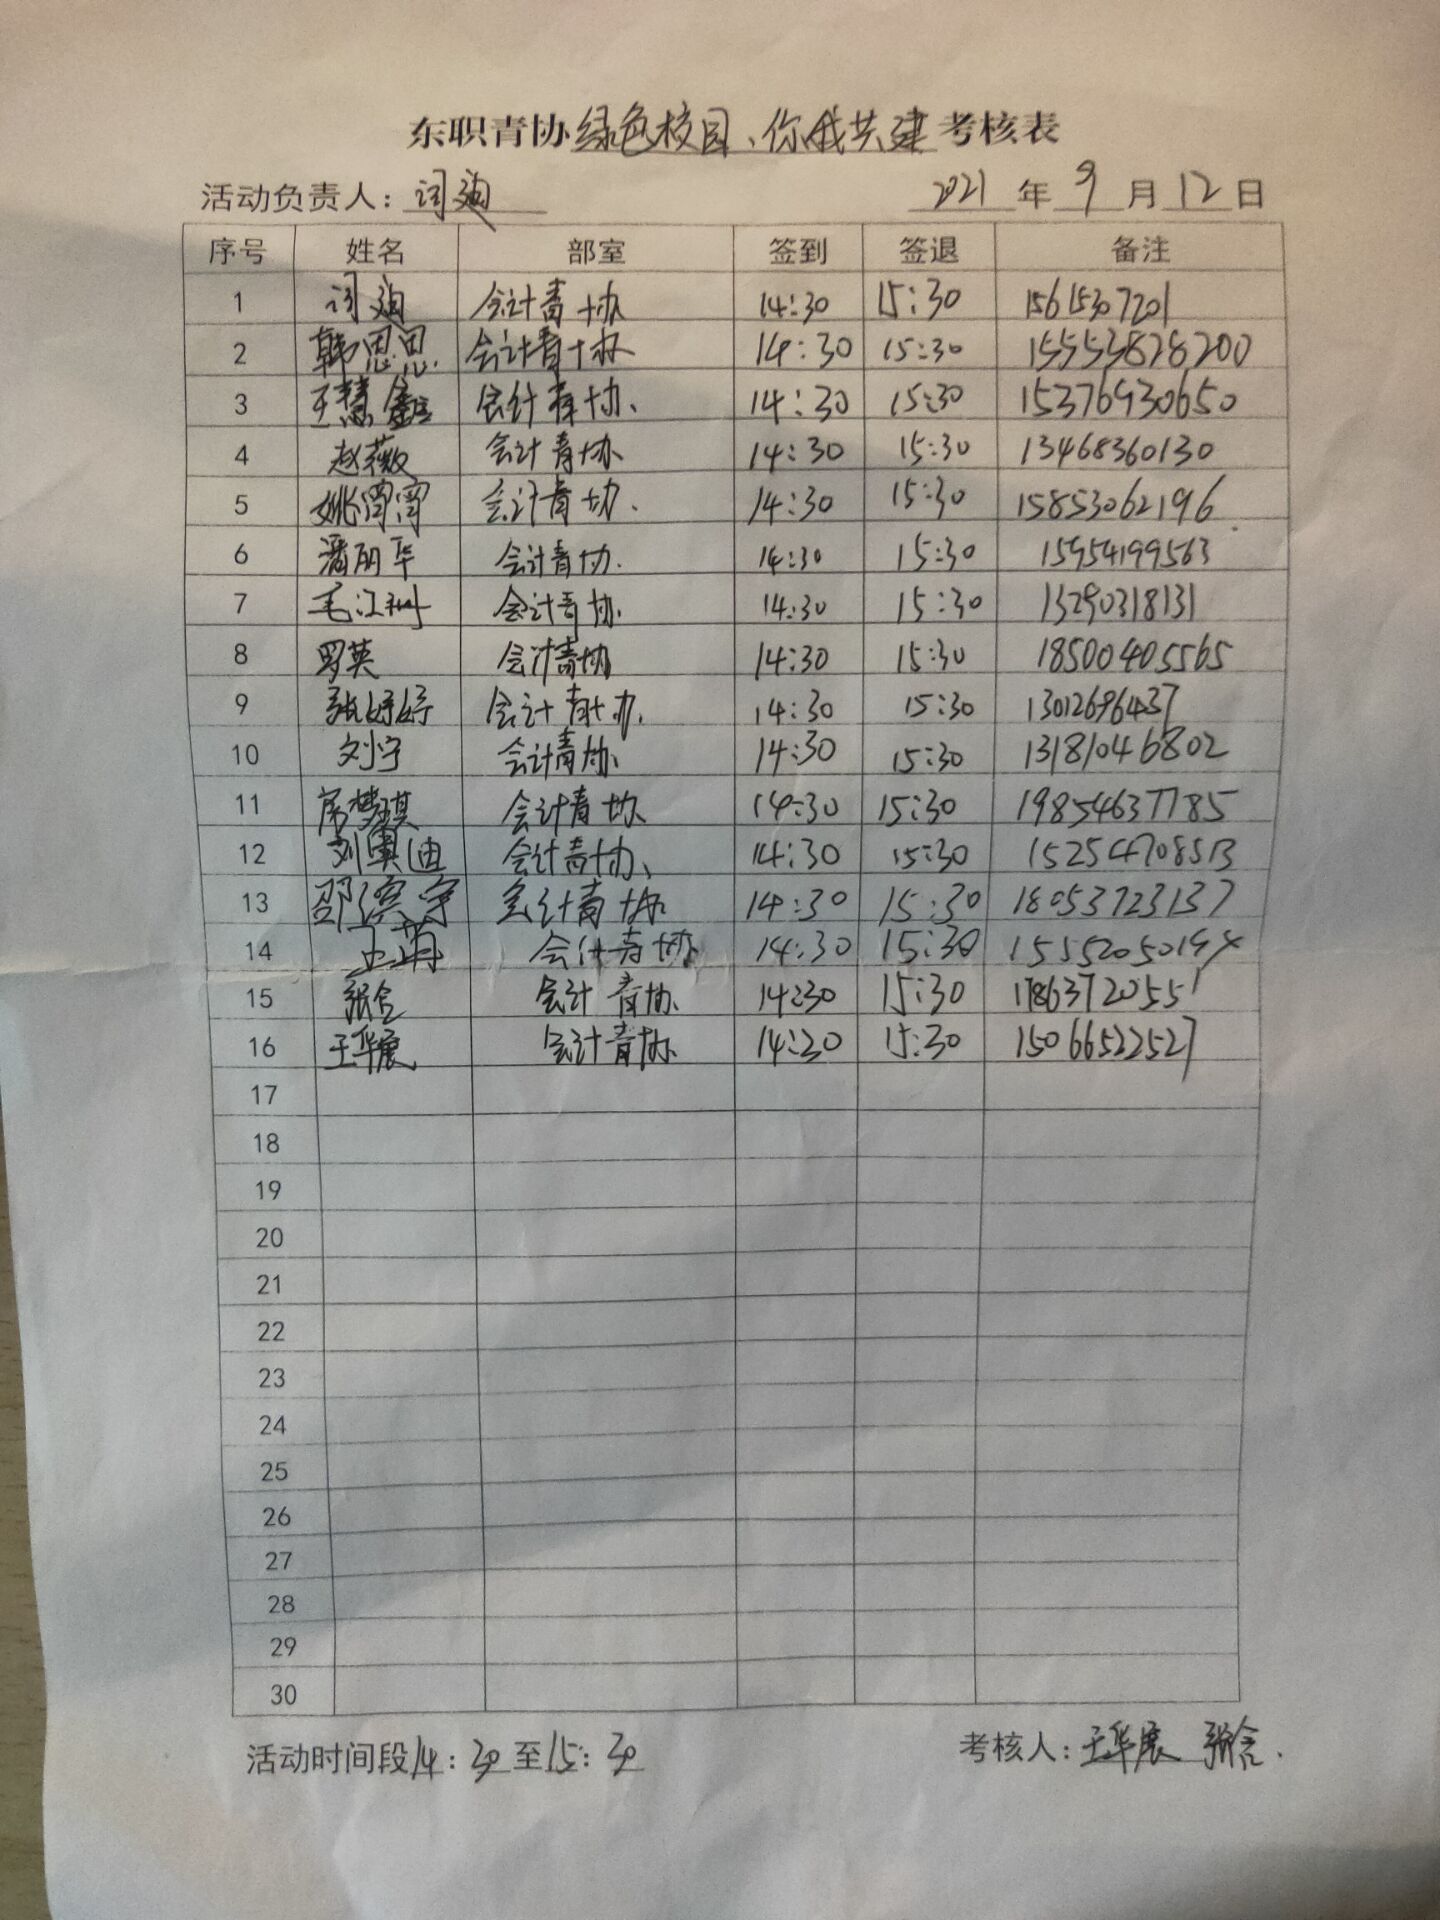 东职青协绿色校园、你我共建考核表
活动负责人: 2021年9月12日
序号 姓名 部室 签到 签退 备注
1 会计青协 14:30 15:30 15615307201
2 韩思思 会计青协 14:30 15:30 15553828200
3 王慧鑫 会计青协 14:30 15:30 15376930650
4 赵薇 会计青协 14:30 15:30 13468360130
5 姚霄霄 会计青协 14:30 15:30 15853062196
6 潘丽华 会计青协 14:30 15:30 15954199563
7 毛江 会计青协 14:30 15:30 15290318131
8 罗英 会计青协 14:30 15:30 18500405565
9 张好好 会计青协 14:30 15:30 13012696437
10 刘宁 会计青协 14:30 15:30 13181046802
11 席梦琪 会计青协 14:30 15:30 19854637785
12 刘奥迪 会计青协 14:30 15:30
13 会计青协 14:30 15:30 18053723137
14 王萌 会计青协 14:30 15:30 15552050194
15 张含 会计青协 14:30 15:30 17863720551
16 王华展 会计青协 14:30 15:30 15066522527
17
18
19
20
21
22
23
24
25
26
27
28
29
30
活动时间段14:30至15:30 考核人:王华展 张含